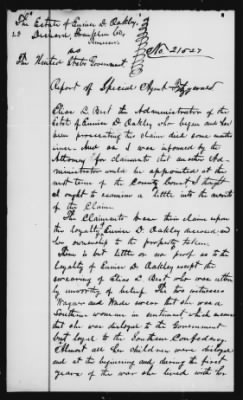 The Estate of Eunice D. Oakley
Deceased,
vs
The United States Government
No 21527
Report of Special Agent
Elias L. Best the Administrator of the
Estate of Eunice D. Oakley who began and has
been prosecuting the claim died some months
since. And as I was informed by the
Attorney for claimants that another Ad-
ministrator would be appointed at the
next term of the County Court I thought
I ought to examine a little into the merits
of the Claim.
The Claimants base this claim upon
the loyalty of Eunice D. Oakley deceased and
her ownership to the property taken.
There is but little or no proof as to the
loyalty of Eunice D. Oakley except the
swearing of Elias L. Best who was utter-
ly unworthy of belief. The two witnesses
and Wade swear that she was a
Southern woman in sentiment which means
that she was disloyal to the Government
but loyal to the Southern Confederacy.
Almost all her children were disloyal
and at the beginning and during the first
years of the war she lived with her